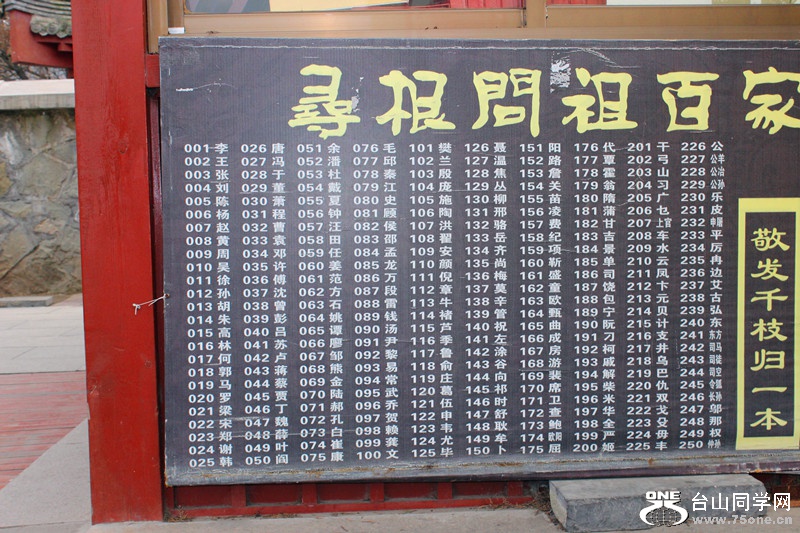 尋根問祖百家
001 李 026 唐 051 余 076 毛 101 樊 126 聂 151 阳 176 代 201 干 226 公
002 王 027 冯 052 潘 077 邱 102 兰 127 温 152 路 177 覃 202 弓 227 公羊
003 张 028 于 053 杜 078 秦 103 殷 128 焦 153 詹 178 霍 203 山 228 公冶
004 刘 029 董 054 戴 079 江 104 庞 129 丛 154 关 179 翁 204 习 229 公孙
005 陈 030 萧 055 夏 080 史 105 施 130 柳 155 苗 180 隋 205 广 230 乐
006 杨 031 程 056 钟 081 顾 106 陶 131 邢 156 凌 181 蒲 206 乜 231 皮
007 赵 032 曹 057 汪 082 侯 107 洪 132 骆 157 费 182 甘 207 上官 232 申屠
008 黄 033 袁 058 田 083 邵 108 翟 133 岳 158 纪 183 吉 208 车 233 平
009 周 034 邓 059 任 084 孟 109 安 134 齐 159 项 184 景 209 水 234 厉
010 吴 035 许 060 姜 085 龙 110 颜 135 尚 160 靳 185 单 210 云 235 冉
011 徐 036 傅 061 范 086 万 111 倪 136 梅 161 盛 186 司 211 凤 236 边
012 孙 037 沈 062 方 087 段 112 章 137 莫 162 童 187 饶 212 卞 237 艾
013 胡 038 曾 063 石 088 雷 113 牛 138 辛 163 欧 188 包 213 元 238 古
014 朱 039 彭 064 姚 089 钱 114 褚 139 管 164 甄 189 宁 214 贝 239 弘
015 高 040 吕 065 谭 090 汤 115 芦 140 祝 165 曲 190 阮 215 计 240 东
016 林 041 苏 066 廖 091 尹 116 季 141 左 166 成 191 刁 216 支 241 东方
017 何 042 卢 067 邹 092 黎 117 鲁 142 涂 167 房 192 柯 217 井 242 司马
018 郭 043 蒋 068 熊 093 易 118 俞 143 谷 168 游 193 戚 218 乌 243 司徒
019 马 044 蔡 069 金 094 常 119 庄 144 向 169 裴 194 解 219 巴 244 司空
020 罗 045 贾 070 陆 095 武 120 葛 145 祁 170 席 195 柴 220 仇 245 令狐
021 梁 046 丁 071 郝 096 乔 121 伍 146 时 171 卫 196 米 221 双 246 长孙
022 宋 047 魏 072 孔 097 贺 122 申 147 舒 172 查 197 华 222 戈 247 邬
023 郑 048 薛 073 白 098 赖 123 韦 148 耿 173 鲍 198 全 223 殳 248 那
024 谢 049 叶 074 崔 099 龚 124 尤 149 牟 174 欧阳 199 严 224 毋 249 权
025 韩 050 阎 075 康 100 文 125 毕 150 卜 175 屈 200 姬 225 丰 250 仲孙
敬发千枝归一本
ONE 台山同学网
www.75one.cn